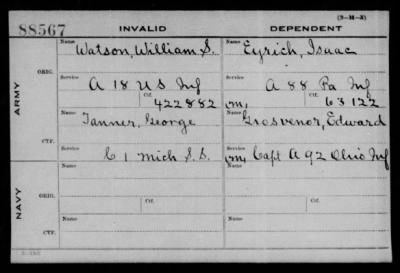 (3-31-X)
88567 INVALID DEPENDENT
Name Watson, William S. Name Eyrich, Isaac
ORIG.
Service A 18 U S Inf Service A 88 Pa Inf
Ctf. 422882 Ctf. 63122
ARMY
Name Tanner, George Name Grosvenor, Edward
CTF.
C 1 Mich S.S. Capt A 92 Ohio Inf
Name Name
ORIG.
Service Ctf. Service Ctf.
NAVY
Name Name
CTF.